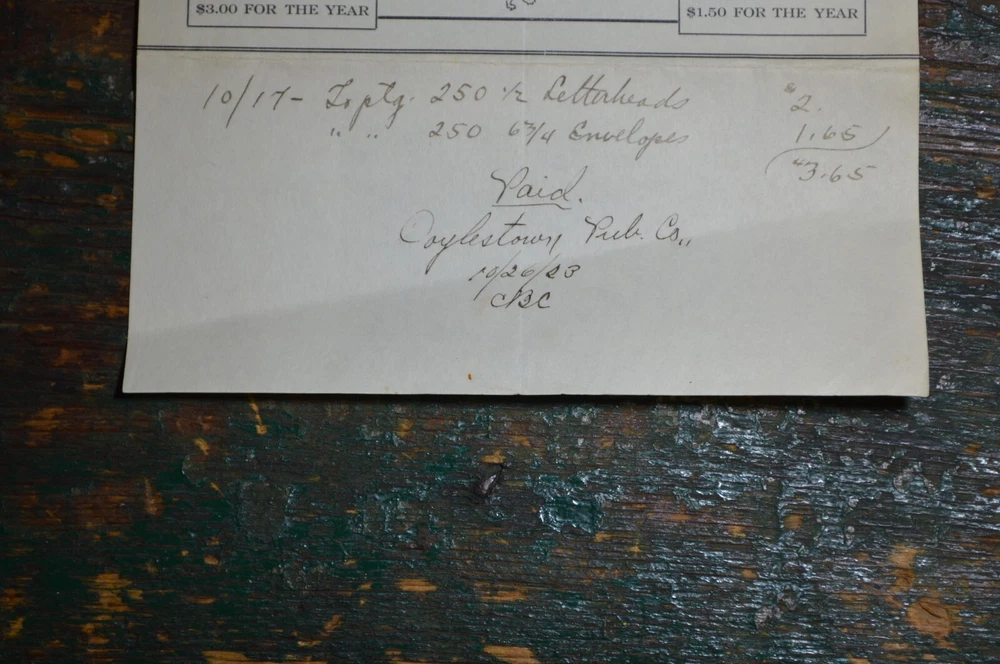 $3.00 FOR THE YEAR
$1.50 FOR THE YEAR
10/17- To ptg. 250 1/2 Letterheads $2.
" " 250 6 3/4 Envelopes 1.65
$3.65
Paid.
Doylestown Pub. Co.,
10/26/23
CBC